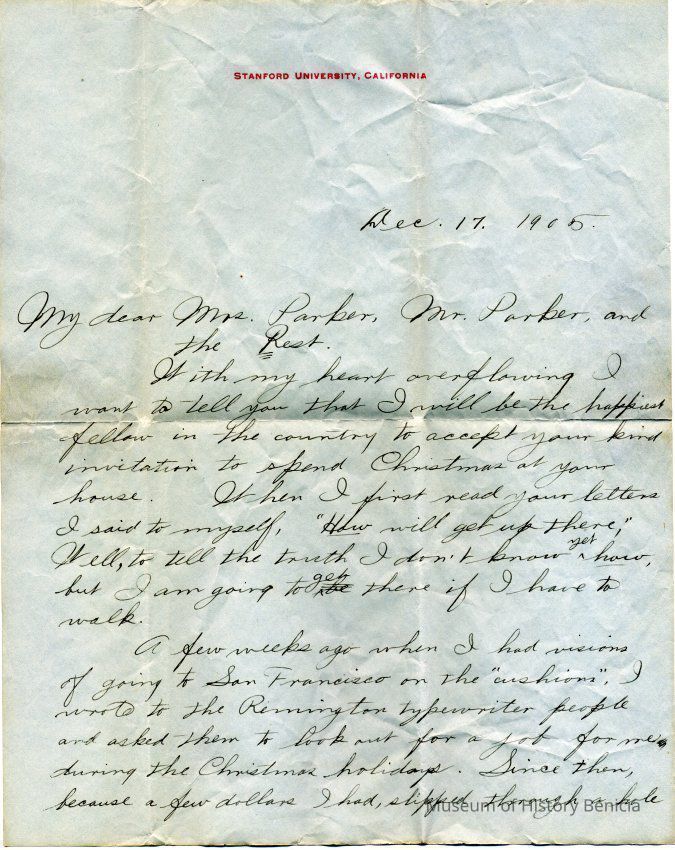 STANFORD UNIVERSITY, CALIFORNIA
Dec. 17. 1905.
My dear Mrs. Parker, Mr. Parker, and
the Rest.
With my heart overflowing I
want to tell you that I will be the happiest
fellow in the country to accept your kind
invitation to spend Christmas at your
house. When I first read your letters
I said to myself, "How will get up there,"
Well, to tell the truth I don't know yet how,
but I am going to get there if I have to
walk.
A few weeks ago when I had visions
of going to San Francisco on the "cushions", I
wrote to the Remington typewriter people
and asked them to look out for a job for me
during the Christmas holidays. Since then,
because a few dollars I had, slipped through a hole
Museum of History Benicia